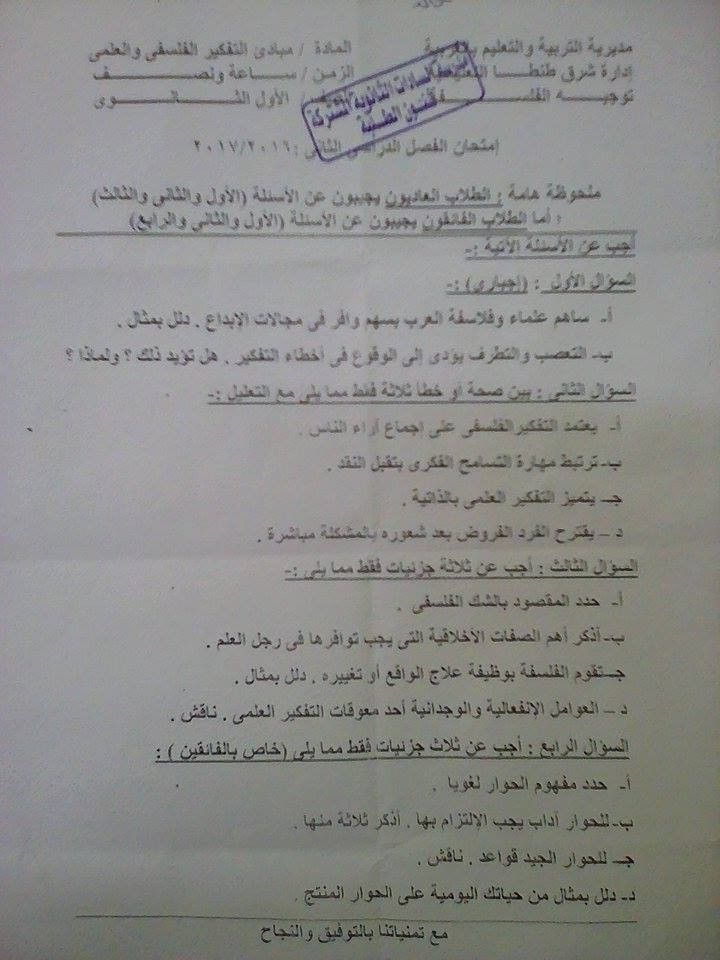 مديرية التربية والتعليم بالغربية المادة / مبادئ التفكير الفلسفى والعلمى
إدارة شرق طنطا التعليمية الزمن / ساعة ونصف
توجيه الفلسفة الأول الثانوى
إمتحان الفصل الدراسى الثانى : ٢٠١٧/٢٠١٦
ملحوظة هامة : الطلاب العاديون يجيبون عن الأسئلة (الأول والثانى والثالث)
: أما الطلاب الفائقون يجيبون عن الأسئلة (الأول والثانى والرابع)
أجب عن الأسئلة الآتية :-
السؤال الأول : (إجبارى) :-
أ- ساهم علماء وفلاسفة العرب بسهم وافر فى مجالات الإبداع . دلل بمثال .
ب- التعصب والتطرف يؤدى إلى الوقوع فى أخطاء التفكير . هل تؤيد ذلك ؟ ولماذا ؟
السؤال الثانى : بين صحة أو خطأ ثلاثة فقط مما يلى مع التعليل :-
أ- يعتمد التفكير الفلسفى على إجماع آراء الناس .
ب- ترتبط مهارة التسامح الفكرى بتقبل النقد .
جـ- يتميز التفكير العلمى بالذاتية .
د – يقترح الفرد الفروض بعد شعوره بالمشكلة مباشرة .
السؤال الثالث : أجب عن ثلاثة جزئيات فقط مما يلى :-
أ- حدد المقصود بالشك الفلسفى .
ب- أذكر أهم الصفات الأخلاقية التى يجب توافرها فى رجل العلم .
جـ- تقوم الفلسفة بوظيفة علاج الواقع أو تغييره . دلل بمثال .
د – العوامل الإنفعالية والوجدانية أحد معوقات التفكير العلمى . ناقش .
السؤال الرابع : أجب عن ثلاث جزئيات فقط مما يلى (خاص بالفائقين ) :
أ- حدد مفهوم الحوار لغويا .
ب- للحوار أداب يجب الإلتزام بها . أذكر ثلاثة منها .
جـ- للحوار الجيد قواعد . ناقش .
د- دلل بمثال من حياتك اليومية على الحوار المنتج .
مع تمنياتنا بالتوفيق والنجاح